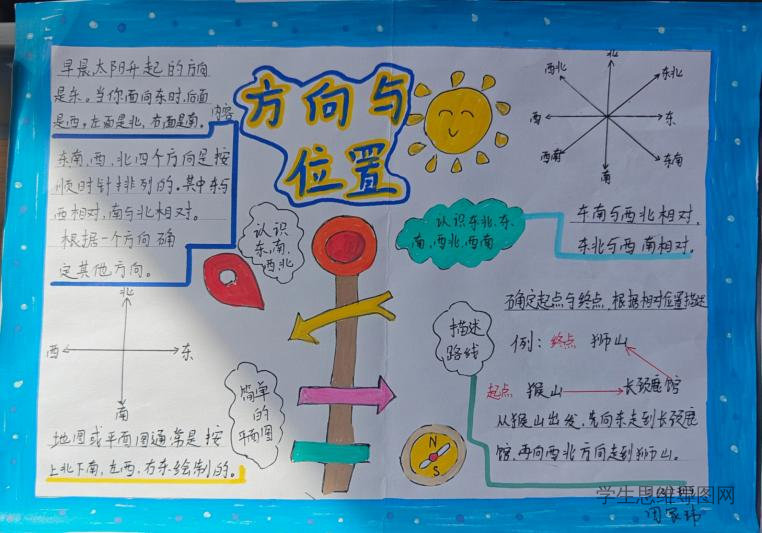 方向与
位置
早晨,太阳升起的方向
是东。当你面向东时,后面
是西,左面是北,右面是南。
内容
东、南、西、北四个方向是按
顺时针排列的。其中东与
西相对,南与北相对。
根据一个方向确
定其他方向。
认识
东、南、
西、北
北
西
东
南
简单
的
平面图
地图或平面图通常是按
上北下南,左西、右东绘制的。
北
西北
东北
西
东
西南
东南
南
认识东北、东
南、西北、西南
东南与西北相对,
东北与西南相对。
描述
路线
确定起点与终点,根据相对位置描述
例:终点 狮山
起点 猴山 长颈鹿馆
从猴山出发,先向东走到长颈鹿
馆,再向西北方向走到狮山。
N
S
学生思维导图网